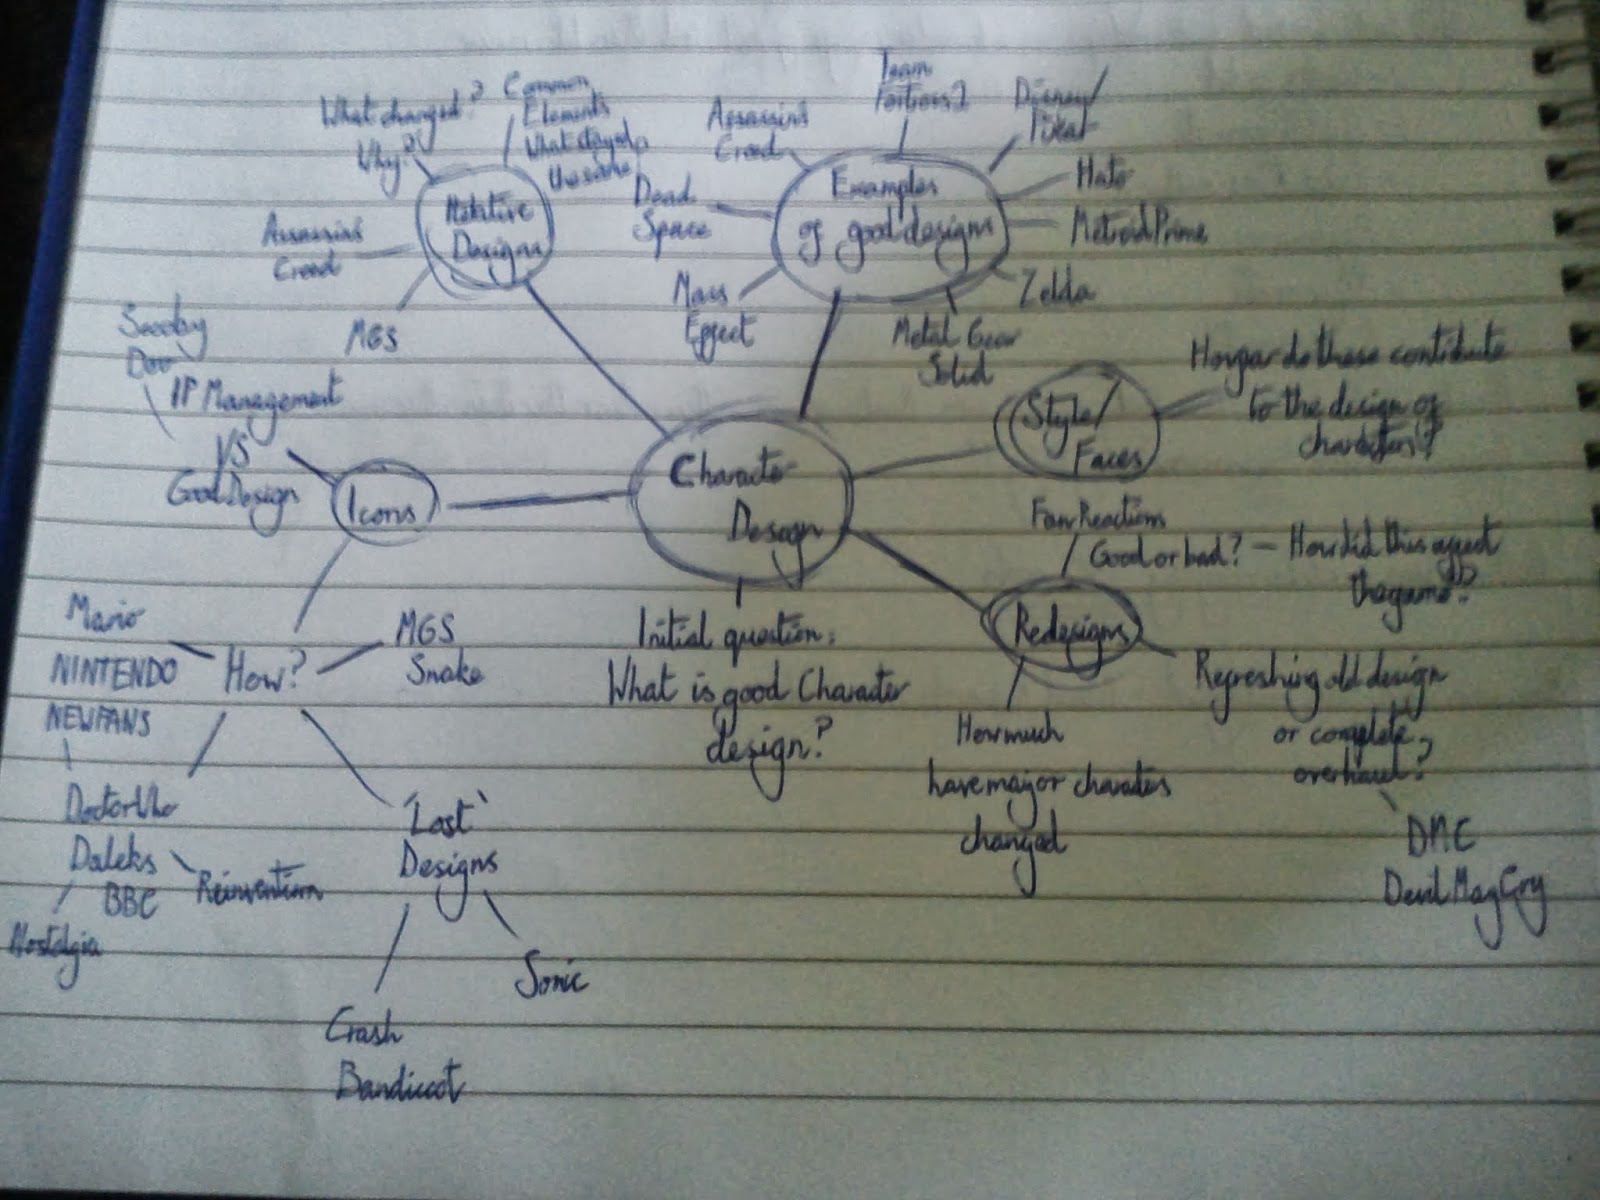 What changed?
Why?
Common
Elements
What stayed
the same
Iterative
Designs
Assassins
Creed
MGS
Examples
of good designs
Assassins
Creed
Team
Fortress 2
Disney/
Pixar
Halo
Metroid Prime
Zelda
Metal Gear
Solid
Mass
Effect
Dead
Space
Scooby
Doo
IP Management
VS
Good Design
Icons
Character
Design
Style/
Faces
How far do these contribute
to the design of
characters?
Fan Reactions
Good or bad? – How did this affect
the game?
Redesigns
Refreshing old design
or complete
overhaul?
DMC
Devil May Cry
How much
have major characters
changed
Initial question:
What is good Character
design?
How?
Mario
NINTENDO
MGS
Snake
NEW FANS
Doctor Who
Daleks
BBC
Reinvention
Nostalgia
'Lost'
Designs
Crash
Bandicoot
Sonic